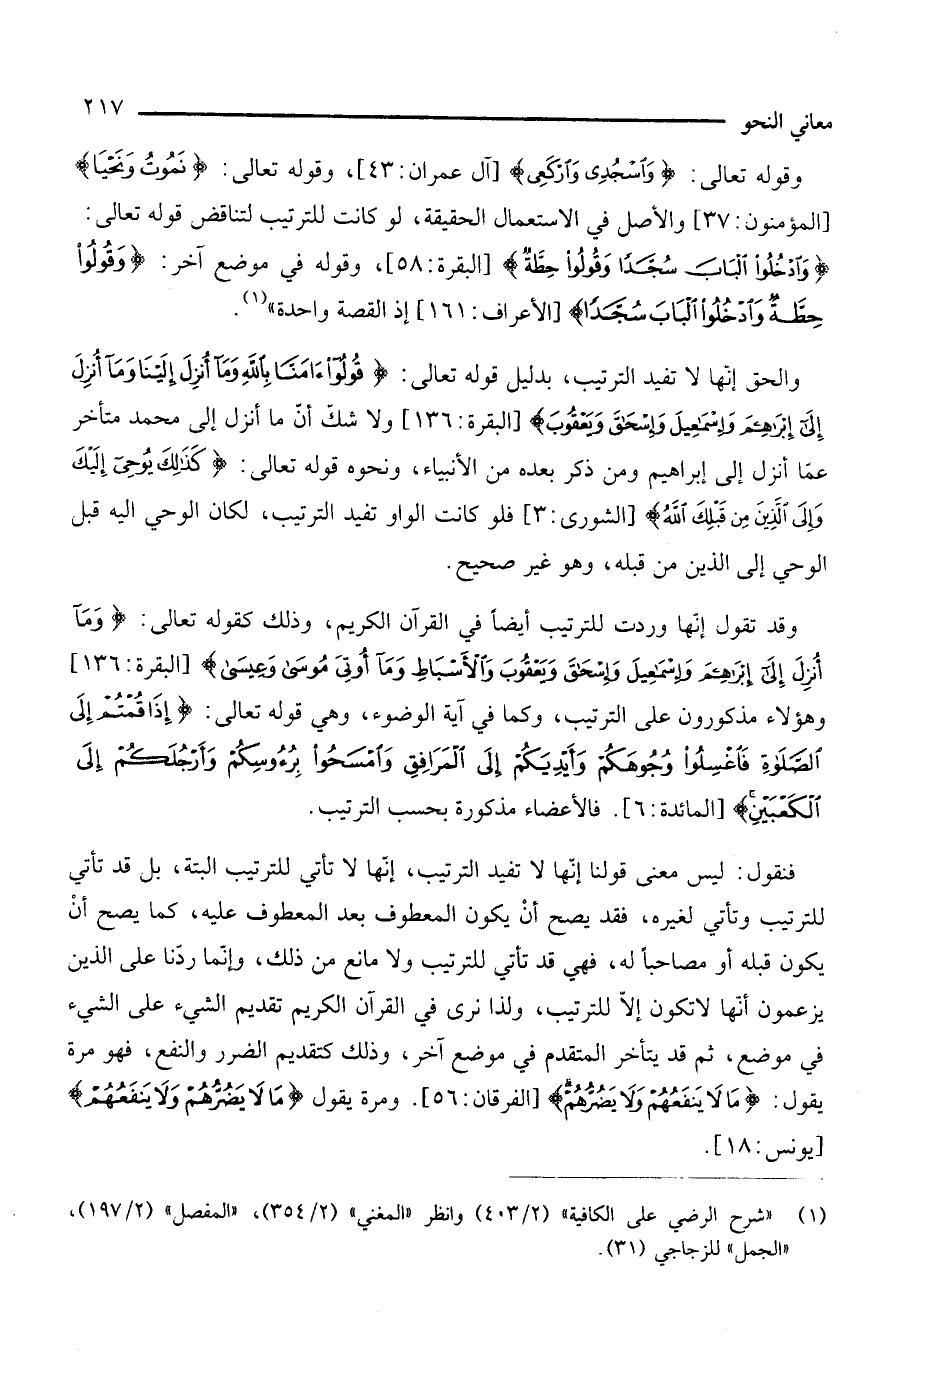 معاني النحو ٢١٧
وقوله تعالى: ﴿وَٱسْجُدِى وَٱرْكَعِى﴾ [آل عمران: ٤٣]، وقوله تعالى: ﴿نَمُوتُ وَنَحْيَا﴾
[المؤمنون: ٣٧] والأصل في الاستعمال الحقيقة، لو كانت للترتيب لتناقض قوله تعالى:
﴿وَٱدْخُلُوا۟ ٱلْبَابَ سُجَّدًا وَقُولُوا۟ حِطَّةٌ﴾ [البقرة: ٥٨]، وقوله في موضع آخر: ﴿وَقُولُوا۟
حِطَّةٌ وَٱدْخُلُوا۟ ٱلْبَابَ سُجَّدًا﴾ [الأعراف: ١٦١] إذ القصة واحدة»(١).
والحق إنّها لا تفيد الترتيب، بدليل قوله تعالى: ﴿قُولُوٓا۟ ءَامَنَّا بِٱللَّهِ وَمَآ أُنزِلَ إِلَيْنَا وَمَآ أُنزِلَ
إِلَىٰٓ إِبْرَٰهِۦمَ وَإِسْمَٰعِيلَ وَإِسْحَٰقَ وَيَعْقُوبَ﴾ [البقرة: ١٣٦] ولا شكّ أنّ ما أنزل إلى محمد متأخر
عمّا أنزل إلى إبراهيم ومن ذكر بعده من الأنبياء، ونحوه قوله تعالى: ﴿كَذَٰلِكَ يُوحِىٓ إِلَيْكَ
وَإِلَى ٱلَّذِينَ مِن قَبْلِكَ ٱللَّهُ﴾ [الشورى: ٣] فلو كانت الواو تفيد الترتيب، لكان الوحي اليه قبل
الوحي إلى الذين من قبله، وهو غير صحيح.
وقد تقول إنّها وردت للترتيب أيضاً في القرآن الكريم، وذلك كقوله تعالى: ﴿وَمَآ
أُنزِلَ إِلَىٰٓ إِبْرَٰهِۦمَ وَإِسْمَٰعِيلَ وَإِسْحَٰقَ وَيَعْقُوبَ وَٱلْأَسْبَاطِ وَمَآ أُوتِىَ مُوسَىٰ وَعِيسَىٰ﴾ [البقرة: ١٣٦]
وهؤلاء مذكورون على الترتيب، وكما في آية الوضوء، وهي قوله تعالى: ﴿إِذَا قُمْتُمْ إِلَى
ٱلصَّلَوٰةِ فَٱغْسِلُوا۟ وُجُوهَكُمْ وَأَيْدِيَكُمْ إِلَى ٱلْمَرَافِقِ وَٱمْسَحُوا۟ بِرُءُوسِكُمْ وَأَرْجُلَكُمْ إِلَى
ٱلْكَعْبَيْنِ﴾ [المائدة: ٦]. فالأعضاء مذكورة بحسب الترتيب.
فنقول: ليس معنى قولنا إنّها لا تفيد الترتيب، إنّها لا تأتي للترتيب البتة، بل قد تأتي
للترتيب وتأتي لغيره، فقد يصح أنْ يكون المعطوف بعد المعطوف عليه، كما يصح أنْ
يكون قبله أو مصاحباً له، فهي قد تأتي للترتيب ولا مانع من ذلك، وإنّما ردّنا على الذين
يزعمون أنّها لاتكون إلاّ للترتيب، ولذا نرى في القرآن الكريم تقديم الشيء على الشيء
في موضع، ثم قد يتأخر المتقدم في موضع آخر، وذلك كتقديم الضرر والنفع، فهو مرة
يقول: ﴿مَا لَا يَنفَعُهُمْ وَلَا يَضُرُّهُمْ﴾ [الفرقان: ٥٦]. ومرة يقول ﴿مَا لَا يَضُرُّهُمْ وَلَا يَنفَعُهُمْ﴾
[يونس: ١٨].
(١) «شرح الرضي على الكافية» (٤٠٣/٢) وانظر «المغني» (٣٥٤/٢)، «المفصل» (١٩٧/٢)،
«الجمل» للزجاجي (٣١).